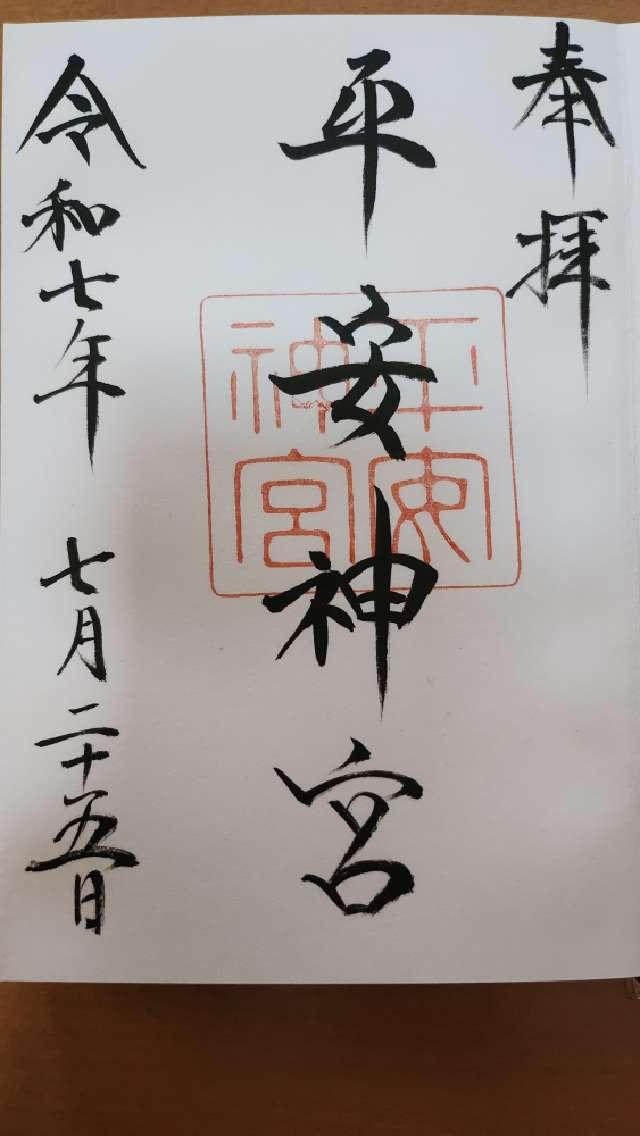 奉拝
平安神宮
平安神宮
令和七年 七月二十五日